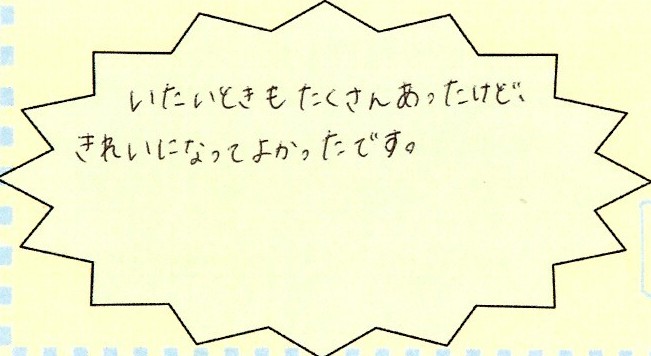 いたいときもたくさんあったけど、
きれいになってよかったです。